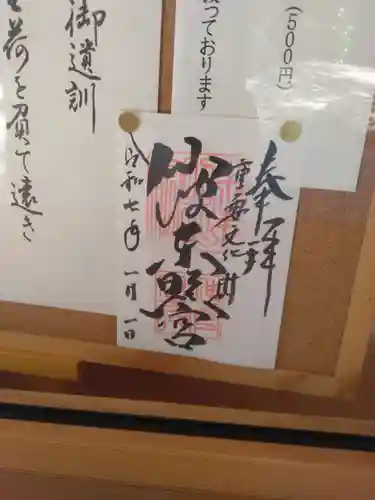 (500円)
っております
御遺訓
荷を負て遠き
奉拝
重要文化財
仙波東照宮
令和七年 一月一日